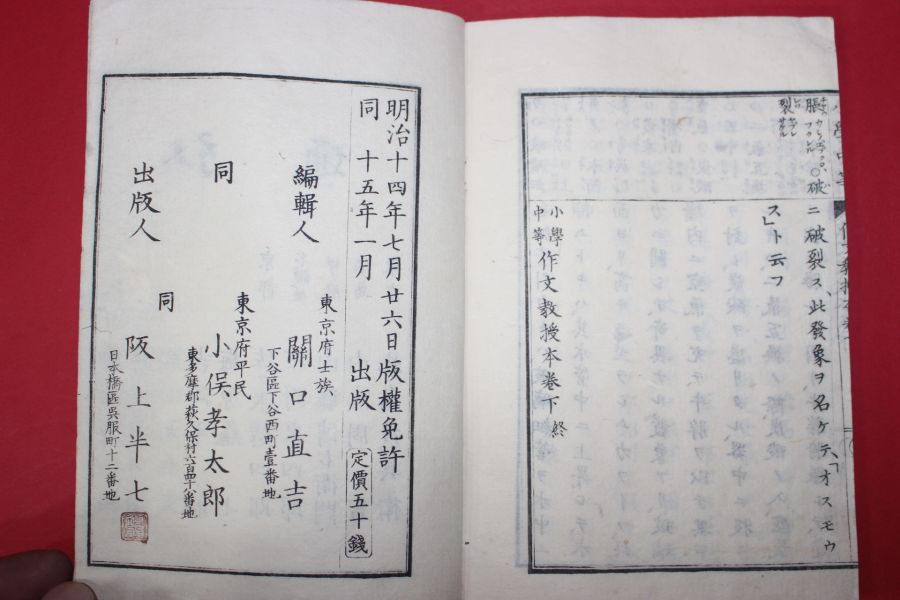 ニ破裂ス、此發象ヲ名ケテ、「オスモウ
ス」ト云フ
小學中等作文教授本卷下 終
明治十四年七月廿六日版權免許
同 十五年一月 出版 定價五十錢
編輯人
東京府士族
關口直吉
下谷區下谷西町壹番地
同
東京府平民
小俣孝太郎
東多摩郡萩久保村六百四十八番地
出版人
同
阪上半七
日本橋區吳服町十二番地